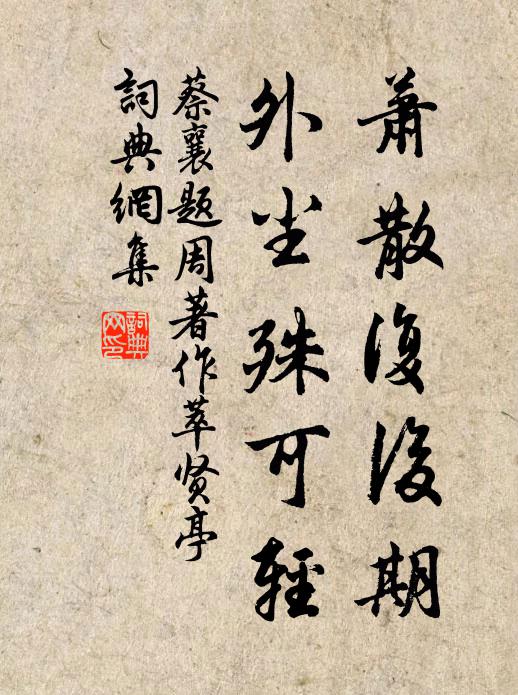 蕭散復後期
外尘殊可輕
蔡襄题周著作萃贤亭
詞典網集
詞典网印